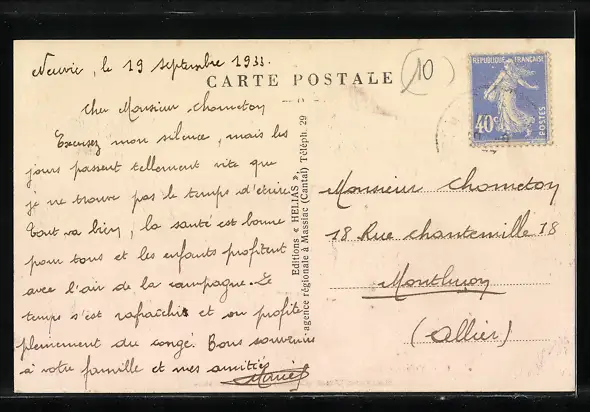 Neuvic, le 19 septembre 1933.
CARTE POSTALE
(10)
REPUBLIQUE FRANÇAISE
40c
POSTES
Cher Monsieur Chometon
Excusez mon silence, mais les
jours passent tellement vite que
je ne trouve pas le temps d'écrire
Tout va bien, la santé est bonne
pour tous et les enfants profitent
avec l'air de la campagne. Le
temps s'est rafraichit et on profite
pleinement du congé. Bons souvenirs
à votre famille et mes amitiés
Editions « HELIAS ».
agence régionale à Massiac (Cantal) Téléph. 29
Monsieur Chometon
18 Rue Chantemille 18
Montluçon
(Allier)